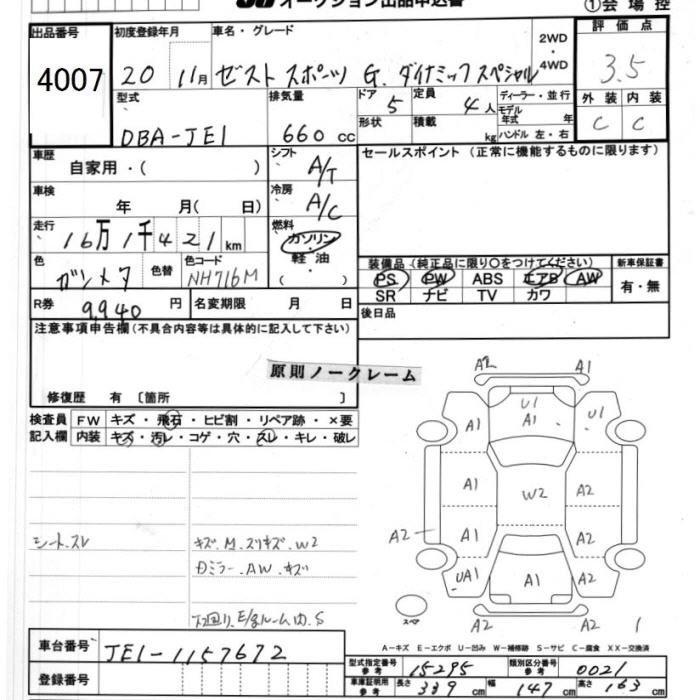 オークション出品申込書
①会場控
出品番号 4007
初度登録年月 20 11月
車名・グレード ゼスト スポーツ G. ダイナミックスペシャル
2WD・4WD
評価点 3.5
外装 内装
C C
型式 DBA-JE1
排気量 660 cc
ドア 5
定員 4人
ディーラー・並行
モデル年式 年
形状
積載 kg
ハンドル 左・右
車歴 自家用・( )
シフト A/T
セールスポイント (正常に機能するものに限ります)
車検 年 月( 日)
冷房 A/C
走行 16万1千421km
燃料 ガソリン・軽油・( )
色 ガンメタ
色替
色コード NH716M
装備品 (純正品に限り○をつけてください)
PS PW ABS エアB AW
SR ナビ TV カワ
新車保証書 有・無
R券 9,940円
名変期限 月 日
後日品
注意事項申告欄 (不具合内容等は具体的に記入して下さい)
原則ノークレーム
修復歴 有 〔箇所 〕
検査員記入欄
FW キズ・飛石・ヒビ割・リペア跡・×要
内装 キズ・汚レ・コゲ・穴・スレ・キレ・破レ
シート.スレ
キズ.M.スリキズ.W2
ロミラー.AW.キズ
下回り.E/gルーム内.S
A2 A1
A1 U1 A1 U1
A1 W2 A2
A2 A1 A2
UA1 A1 A2
スペア
A2 A2 1
A-キズ E-エクボ U-凹み W-補修跡 S-サビ C-腐食 XX-交換済
車台番号 JE1-1157672
登録番号
型式指定番号 参考 15295
類別区分番号 参考 0021
車庫証明用 参考 長さ 339cm 幅 147cm 高さ 163cm